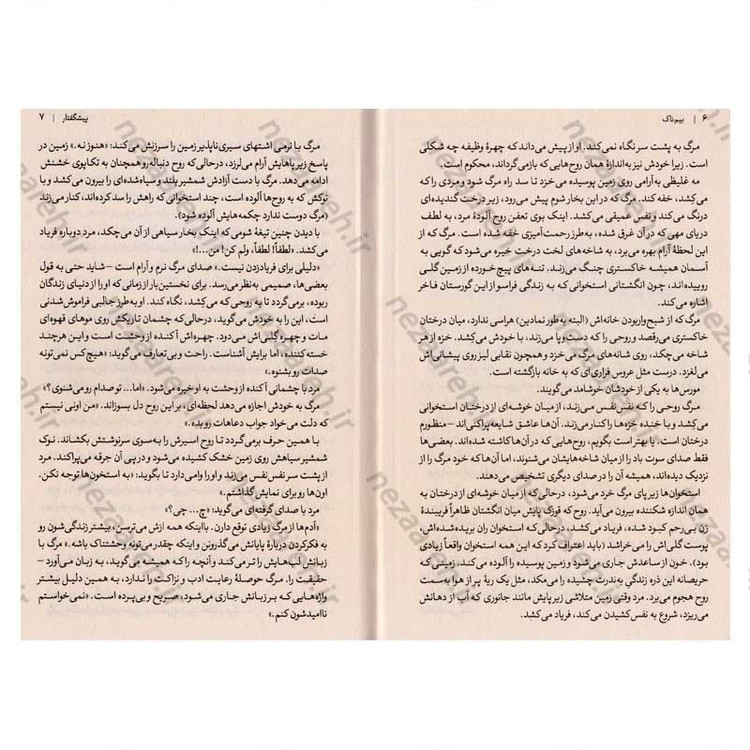 ۶ | بیم‌ناک
مرگ به پشت سر نگاه نمی‌کند. او از پیش می‌داند که چهرهٔ وظیفه چه شکلی
است. زیرا خودش نیز به‌اندازهٔ همان روح‌هایی که بازمی‌گرداند، محکوم است.
مه غلیظی به‌آرامی روی زمین پوسیده می‌خزد تا سد راه مرگ شود و مردی را که
می‌کِشد، خفه کند. مرگ که در این بخار شوم پیش می‌رود، زیر درخت گندیده‌ای
درنگ می‌کند و نفس عمیقی می‌کشد. اینک بوی تعفن روح آلودهٔ مرد، به لطف
دریای مهی که در آن غرق شده، به‌طرز رحمت‌آمیزی خفه شده است. مرگ که از
این لحظهٔ آرام بهره می‌برد، به شاخه‌های لخت درخت خیره می‌شود که گویی به
آسمان همیشه خاکستری چنگ می‌زند. تنه‌های پیچ خورده از زمین گلی
روییده‌اند، چون انگشتانی استخوانی که به زندگی فراسو از این گورستان فاخر
اشاره می‌کند.
مرگ که از شبح‌وار بودن خانه‌اش (البته به‌طور نمادین) هراسی ندارد، میان درختان
خاکستری می‌رقصد و روحی را که دست‌وپا می‌زند، با خودش می‌کشد. خزه از هر
شاخه می‌چکد، روی شانه‌های مرگ می‌خزد و همچون نقابی لیز روی پیشانی‌اش
می‌افتد. به درست مثل عروس فراری‌ای که به خانه بازگشته است.
مورس‌ها به یکی از خودشان خوشامد می‌گویند.
مرگ روحی را که نفس‌نفس می‌زند، از میان خوشه‌ای از درختان استخوانی
می‌کشد و با خنده خزه‌ها را کنار می‌زند. آن‌ها عاشق شایعه پراکنی‌اند – منظورم
درختان است. یا بهتر است بگویم، روح‌هایی که در آن‌ها کاشته شده‌اند. بعضی‌ها
فقط صدای سوت باد را از میان شاخه‌هایشان می‌شنوند، اما آن‌ها که خود مرگ را از
نزدیک دیده‌اند، همیشه آن را در صدای دیگری تشخیص می‌دهند.
استخوان‌ها زیر پای مرگ خرد می‌شود، درحالی‌که از میان خوشه‌ای از درختان به
همان اندازه شکننده بیرون می‌آید. روح که قوزک پایش میان انگشتان ظاهراً فریبندهٔ
زن بی‌رحم کبود شده، فریاد می‌کشد، درحالی‌که استخوان ران بریده‌شده‌اش،
پوست گلی‌اش را می‌خراشد (باید اعتراف کرد که این همه استخوان واقعاً زیادی
بود). خون از ساعدش جاری می‌شود و زمین پوسیده را آلوده می‌کند. زمینی که
حریصانه این ذره زندگی به‌ندرت چشیده را می‌مکد، مثل یک ریهٔ پر از هوا به‌سمت
روح هجوم می‌برد. مرد وقتی زمین متلاشی زیر پایش مانند جانوری که آب از دهانش
می‌ریزد، شروع به نفس کشیدن می‌کند، فریاد می‌کشد.
پیشگفتار | ۷
مرگ با نرمی اشتهای سیری‌ناپذیر زمین را سرزنش می‌کند: «هنوز نه.» زمین در
پاسخ زیر پاهایش آرام می‌لرزد، درحالی‌که روح دنباله‌رو همچنان به تکاپوی خشنش
ادامه می‌دهد. مرگ با دست آزادش شمشیر بلند و سیاه‌شده‌ای را بیرون می‌کشد و با
نوکش که به روح‌ها آلوده است، چند استخوانی که راهش را سد کرده‌اند، کنار می‌زند
(مرگ دوست ندارد چکمه‌هایش آلوده شود).
با دیدن چنین تیغهٔ شومی که اینک بخار سیاهی از آن می‌چکد، مرد دوباره فریاد
می‌کشد. «لطفاً! لطفاً، ولم کن! من...!»
«دلیلی برای فریاد زدن نیست.» صدای مرگ نرم و آرام است – شاید حتی به قول
بعضی‌ها، صمیمی به‌نظر می‌رسد. برای نخستین بار از زمانی که او را از دنیای زندگان
ربوده، برمی‌گردد تا به روحی که می‌کشد، نگاه کند. او به‌طرز جالبی فراموش‌شدنی
است، این را به خودش می‌گوید، درحالی‌که چشمان تاریکش روی موهای قهوه‌ای
مات و چهره گِلی‌اش می‌دود. چهره‌اش آکنده از وحشت است و این هرچند
خسته‌کننده، اما برایش آشناست. راحت و بی‌تعارف می‌گوید: «هیچ‌کس نمی‌تونه
صدات رو بشنوه.»
مرد با چشمانی آکنده از وحشت به او خیره می‌شود. «اما... تو صدام رو می‌شنوی؟»
مرگ به خودش اجازه می‌دهد لحظه‌ای، بر این روح دل بسوزاند. «من اونی نیستم
که دلت می‌خواد جواب دعاهات رو بده.»
با همین حرف برمی‌گردد تا روح اسیرش را به‌سوی سرنوشتش بکشاند. نوک
شمشیر سیاهش روی زمین خشک کشیده می‌شود و در پی آن جرقه می‌پراکند. مرد
از پشت سر نفس‌نفس می‌زند و او را وامی‌دارد تا بگوید: «به استخون‌ها توجه نکن.
اون‌ها رو برای نمایش گذاشتم.»
مرد با صدای گرفته‌ای می‌گوید: «چ... چی؟»
«آدم‌ها از مرگ زیادی توقع دارن. بااینکه همه ازش می‌ترسن، بیشتر زندگی‌شون رو
به فکر کردن دربارهٔ پایانش می‌گذرونن و اینکه چقدر می‌تونه وحشتناک باشه.» مرگ با
زبانش لب‌هایش را تر می‌کند و آنچه را که همیشه می‌گوید، به زبان می‌آورد –
حقیقت را. مرگ حوصلهٔ رعایت ادب و نزاکت را ندارد، به همین دلیل بیشتر
واژه‌هایی که بر زبانش جاری می‌شود، صریح و بی‌پرده است. «نمی‌خواستم
ناامیدشون کنم.»
nezaareh.ir